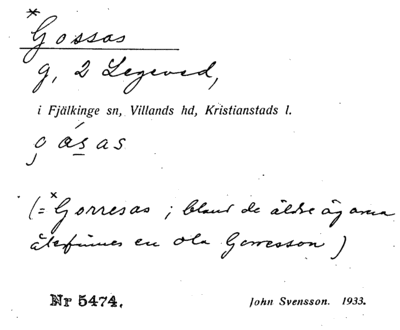 *Gossas
g, 2 Legeved,
i Fjälkinge sn, Villands hd, Kristianstads l.
gåsas
(= *Gorresas ; bland de äldre ägarna
återfinnes en Ola Gorresson )
Nr 5474. John Svensson. 1933.